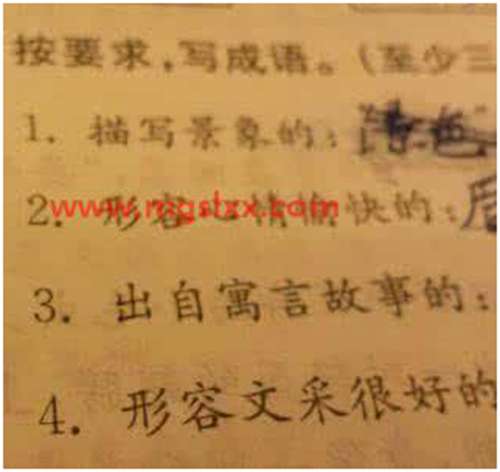 按要求,写成语。(至少三
1. 描写景象的:
2. 形容心情愉快的:
www.mgslxx.com
3. 出自寓言故事的:
4. 形容文采很好的